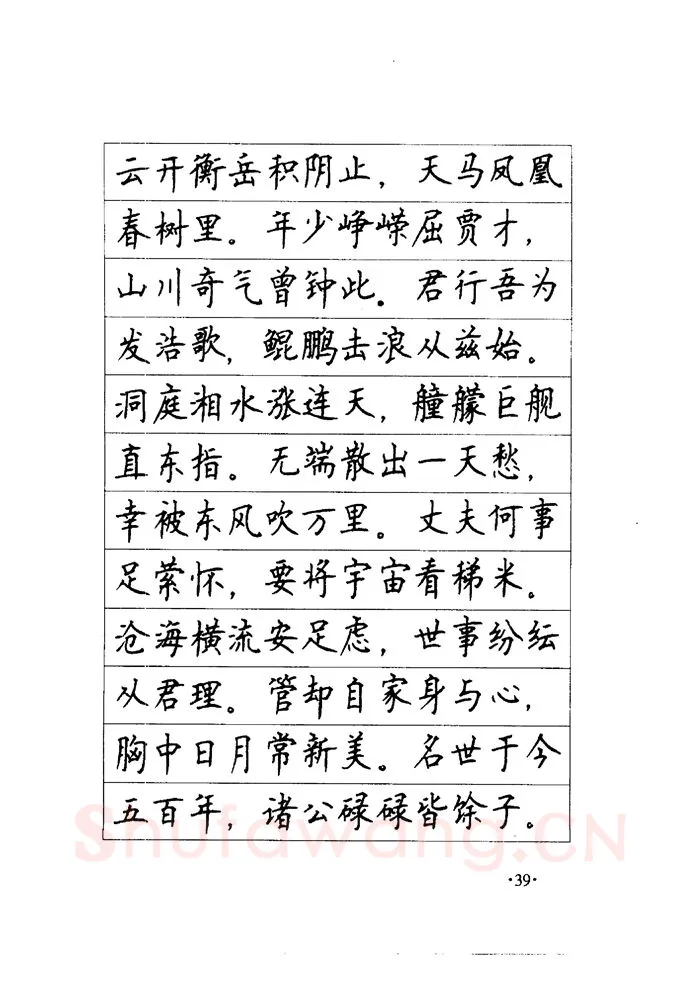 云开衡岳积阴止，天马凤凰
春树里。年少峥嵘屈贾才，
山川奇气曾钟此。君行吾为
发浩歌，鲲鹏击浪从兹始。
洞庭湘水涨连天，艟艨巨舰
直东指。无端散出一天愁，
幸被东风吹万里。丈夫何事
足萦怀，要将宇宙看稊米。
沧海横流安足虑，世事纷纭
从君理。管却自家身与心，
胸中日月常新美。名世于今
五百年，诸公碌碌皆馀子。
Shufawang.CN
·39·